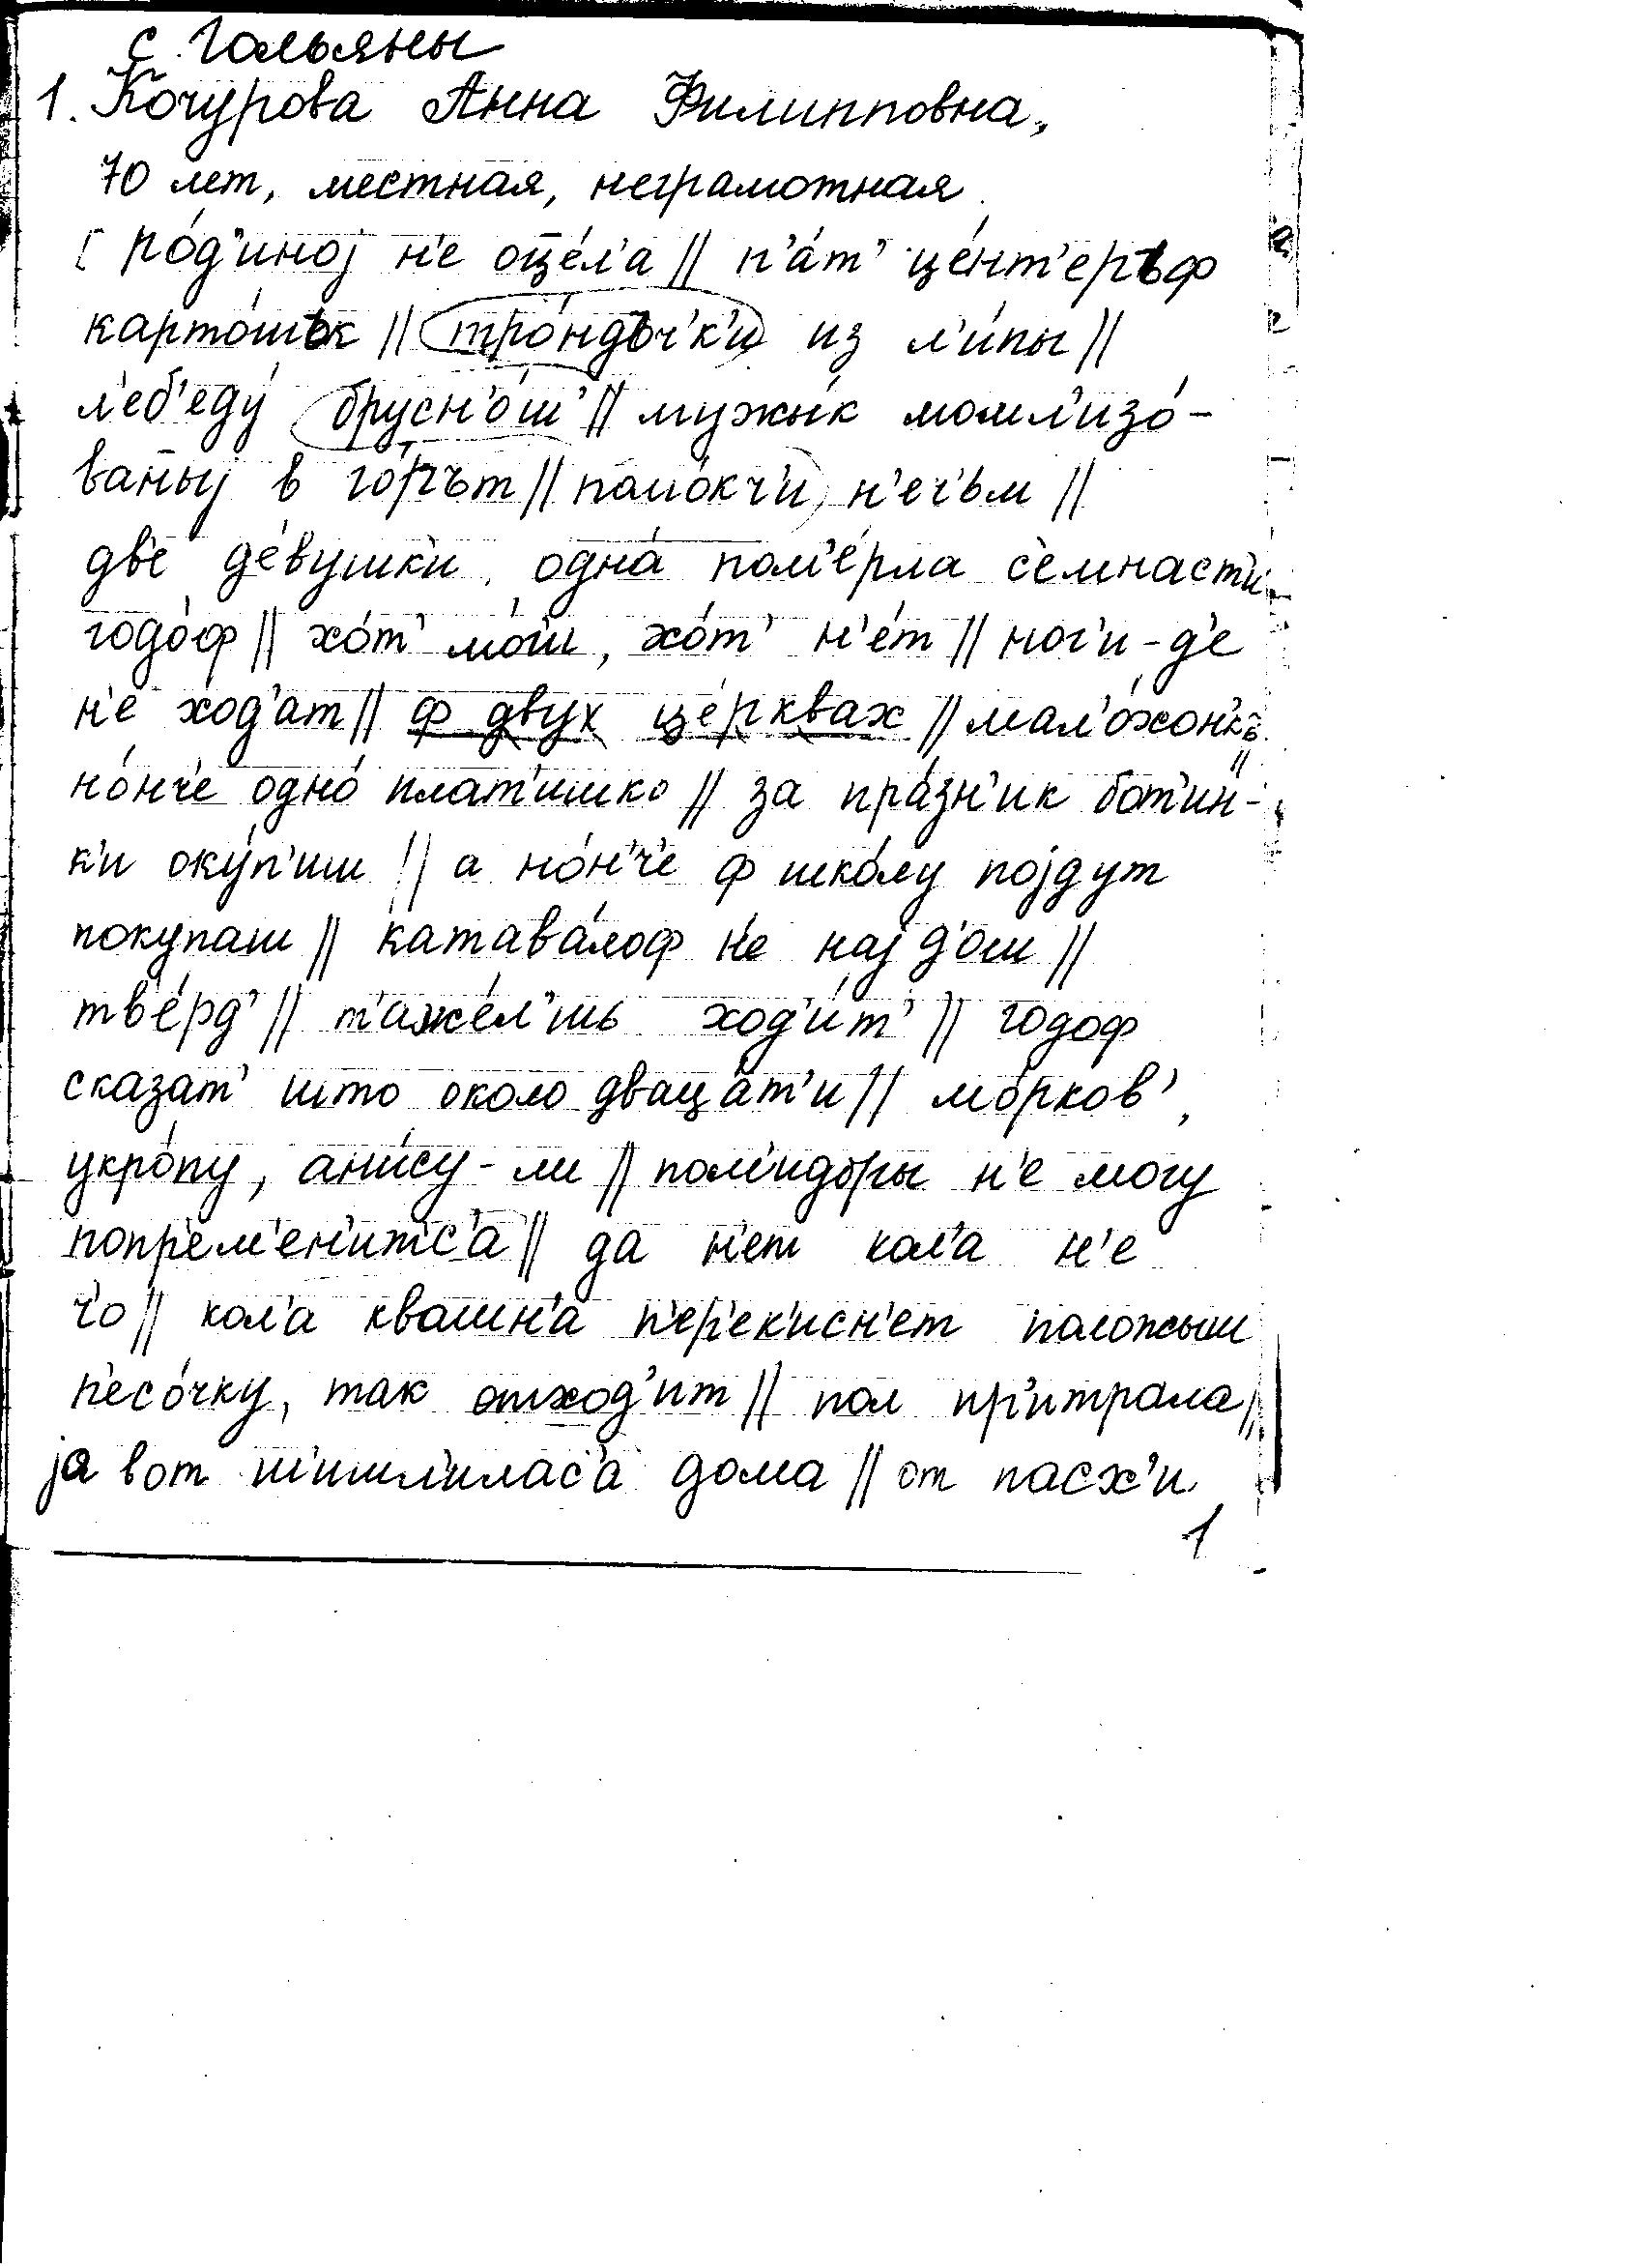 с. Гольяны
1. Кочурова Анна Филипповна,
70 лет, местная, неграмотная.
[ ро́д'иноj н'е оце́л'а // п'а́т' це́нт'еръф
карто́шък // тро́ндъч'к'и из л'и́пы //
л'еб'еду́ брусн'о́ш' // мужы́к момл'изо́-
ваныj в го́рът // помокч'и н'еч'ьм //
дв'е де́вушк'и, одна́ пом'е́рла с'емнаст'и
годо́ф // хо́т' мо́ш, хо́т' н'е́т // ног'и-д'е
н'е ход'ат // ф двух це́рквах // мал'о́хон'къ //
но́нч'е одно́ плат'ишко // за пра́зн'ик бот'ин-
к'и оку́п'иш // а но́н'ч'е ф шко́лу поjдут
покупаш // катава́лоф н'е наj д'ош //
тв'е́рд' // т'аже́л'шь ход'и́т' // годоф
сказат' што около двацат'и // морков',
укро́пу, ани́су-ли // пом'идоры н'е могу
попр'ем'ен'итс'а // да н'ет кол'а н'е
ч'о // кол'а квашн'а п'ер'ек'исн'ет положыш
п'есо́чку, так отход'ит // пол пр'итрала //
jа вот ш'ишл'илас'а дома // от пасх'и
1